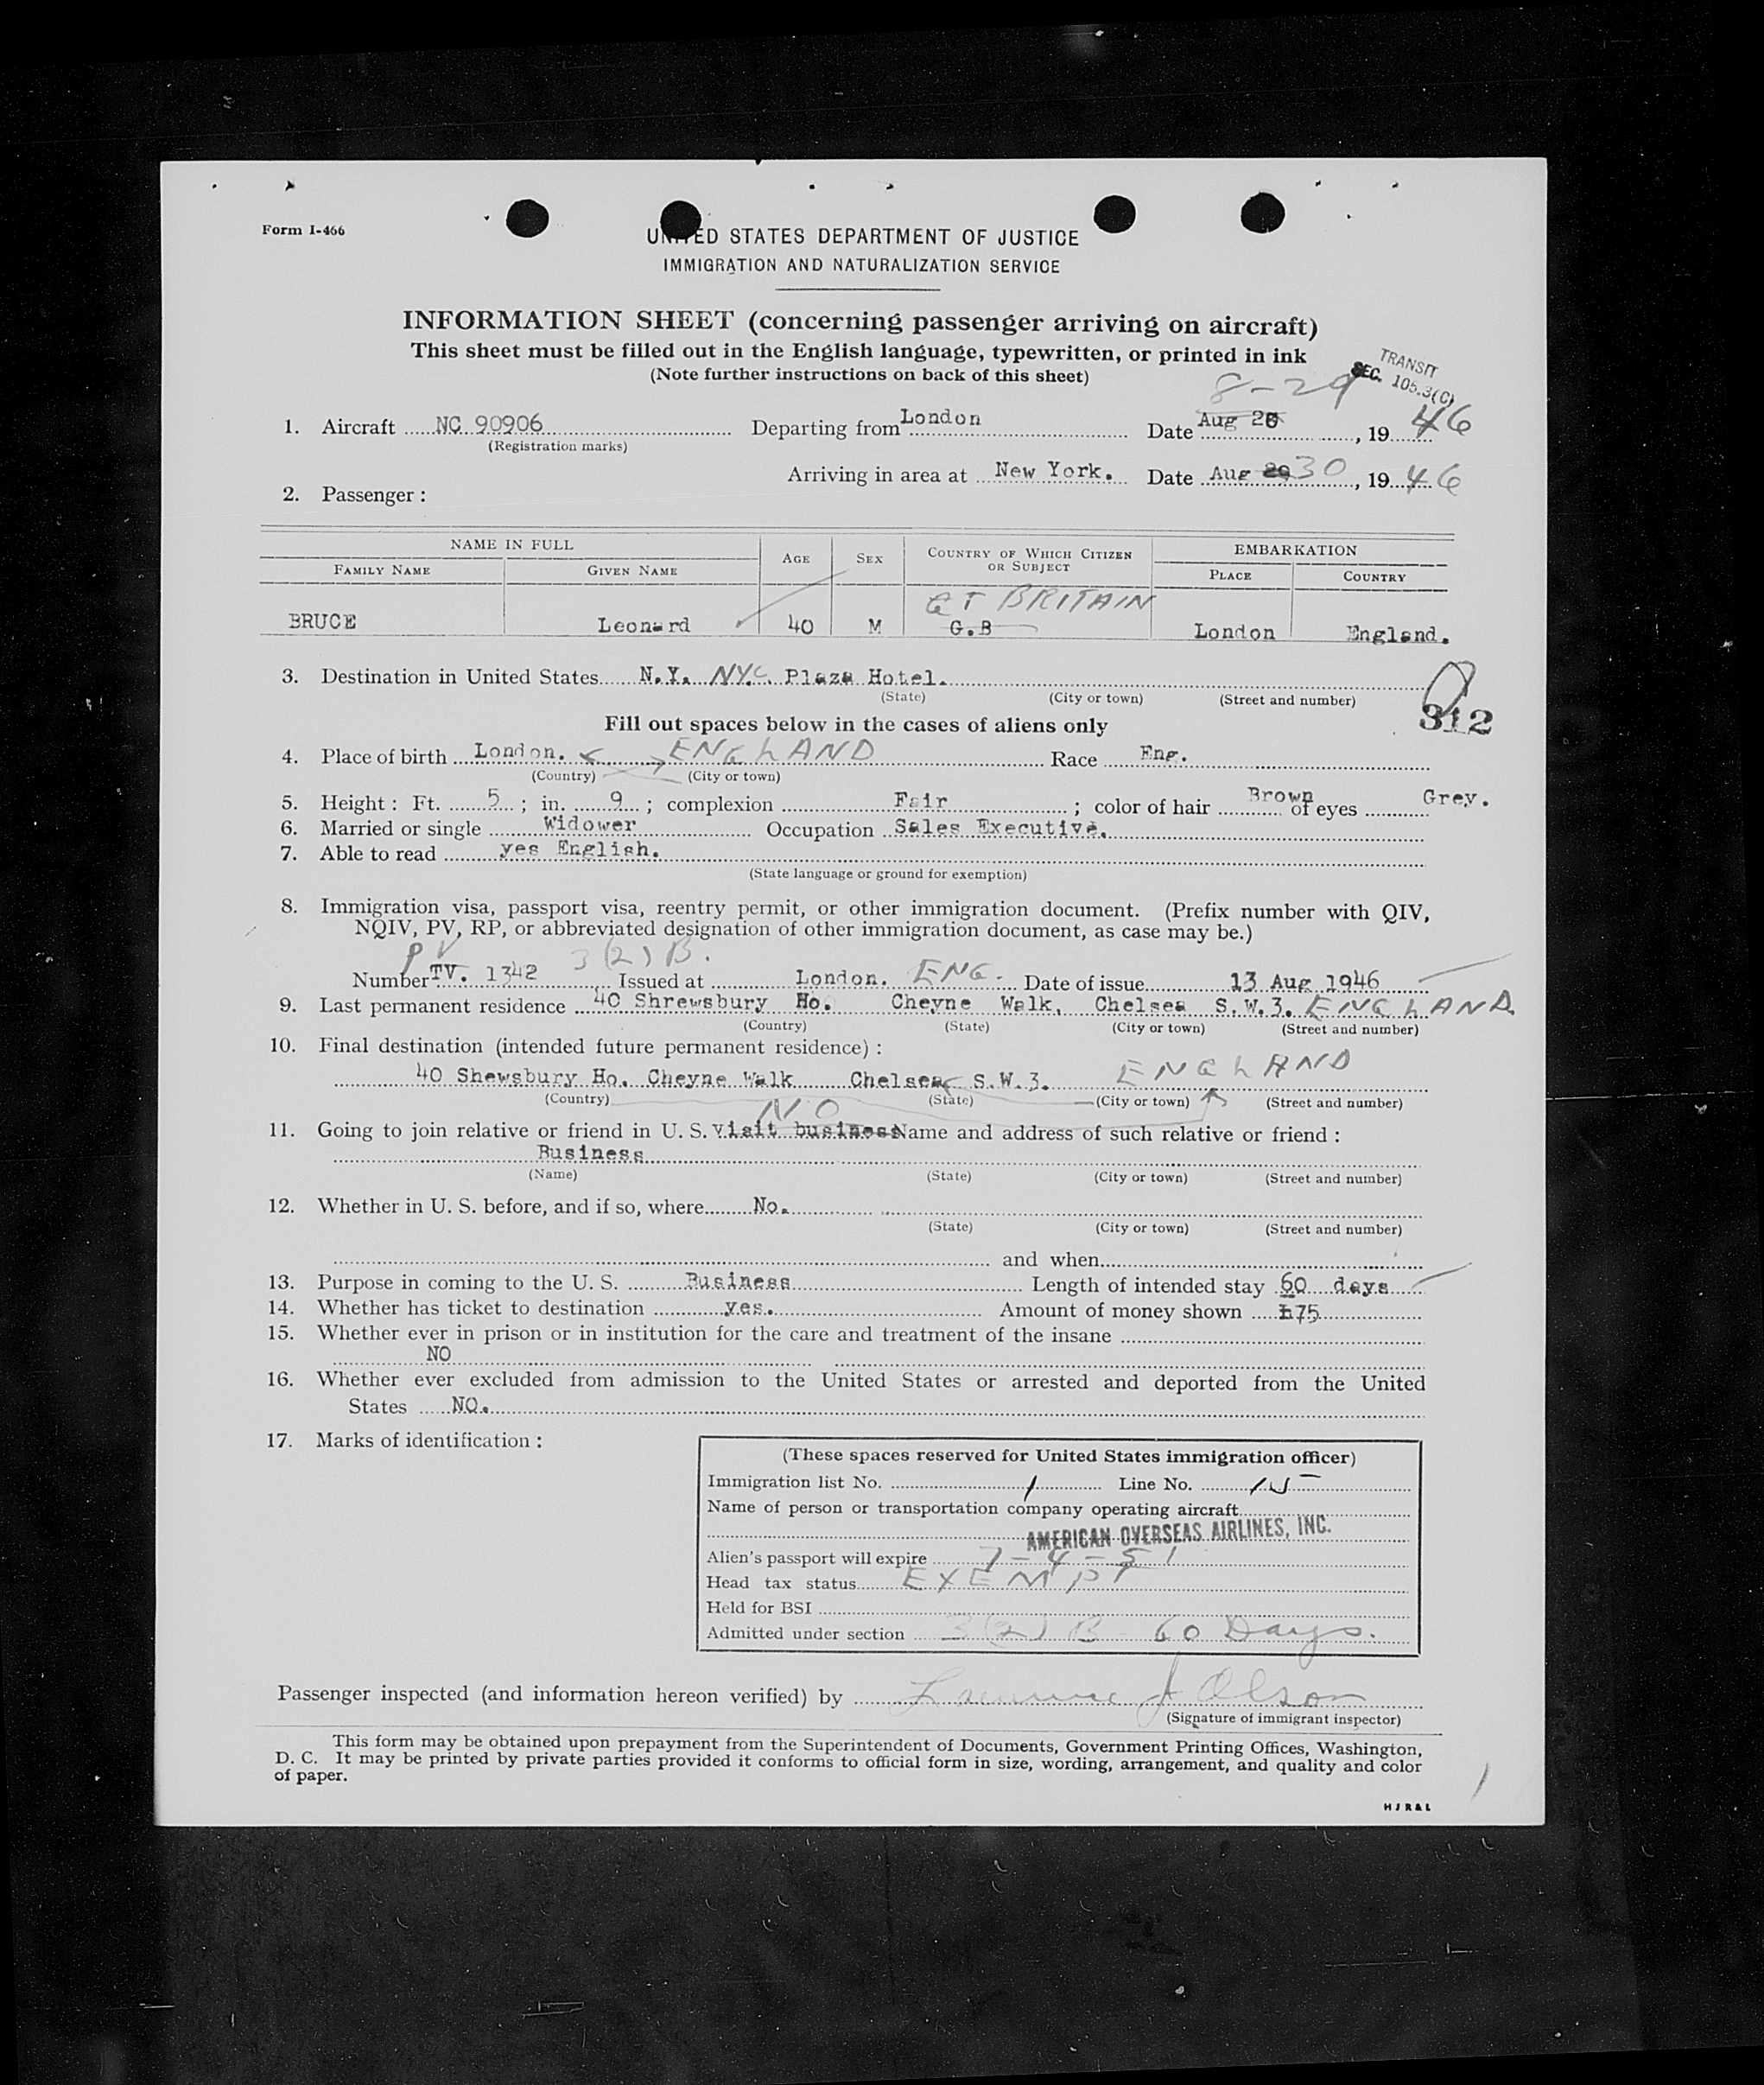 Form I-466
UNITED STATES DEPARTMENT OF JUSTICE
IMMIGRATION AND NATURALIZATION SERVICE
INFORMATION SHEET (concerning passenger arriving on aircraft)
This sheet must be filled out in the English language, typewritten, or printed in ink
(Note further instructions on back of this sheet)
TRANSIT
SEC. 105.3(C)
8-29
1. Aircraft NC 90906 Departing from London Date Aug 28, 19 46
(Registration marks)
Arriving in area at New York. Date Aug 29 30, 19 46
2. Passenger:
NAME IN FULL AGE SEX COUNTRY OF WHICH CITIZEN OR SUBJECT EMBARKATION
FAMILY NAME GIVEN NAME PLACE COUNTRY
GT BRITAIN
BRUCE Leonard 40 M G.B London England.
3. Destination in United States N.Y. NYC. Plaza Hotel.
(State) (City or town) (Street and number)
312
Fill out spaces below in the cases of aliens only
4. Place of birth London. ENGLAND Race Eng.
(Country) (City or town)
5. Height: Ft. 5; in. 9; complexion Fair; color of hair Brown of eyes Grey.
6. Married or single Widower Occupation Sales Executive.
7. Able to read yes English.
(State language or ground for exemption)
8. Immigration visa, passport visa, reentry permit, or other immigration document. (Prefix number with QIV,
NQIV, PV, RP, or abbreviated designation of other immigration document, as case may be.)
PV 3(2)B.
Number TV. 1342 Issued at London. ENG. Date of issue 13 Aug 1946
9. Last permanent residence 40 Shrewsbury Ho. Cheyne Walk, Chelsea S.W.3. ENGLAND
(Country) (State) (City or town) (Street and number)
10. Final destination (intended future permanent residence):
40 Shewsbury Ho. Cheyne Walk Chelsea S.W.3. ENGLAND
(Country) (State) (City or town) (Street and number)
NO
11. Going to join relative or friend in U. S. visit business Name and address of such relative or friend:
Business
(Name) (State) (City or town) (Street and number)
12. Whether in U. S. before, and if so, where No.
(State) (City or town) (Street and number)
and when
13. Purpose in coming to the U. S. Business Length of intended stay 60 days
14. Whether has ticket to destination yes. Amount of money shown £75
15. Whether ever in prison or in institution for the care and treatment of the insane
NO
16. Whether ever excluded from admission to the United States or arrested and deported from the United
States NO.
17. Marks of identification:
(These spaces reserved for United States immigration officer)
Immigration list No. 1 Line No. 15
Name of person or transportation company operating aircraft
AMERICAN OVERSEAS AIRLINES, INC.
Alien's passport will expire 7-4-51
Head tax status EXEMPT
Held for BSI
Admitted under section 3(2) B 60 Days.
Passenger inspected (and information hereon verified) by Lawrence J Olson
(Signature of immigrant inspector)
This form may be obtained upon prepayment from the Superintendent of Documents, Government Printing Offices, Washington,
D. C. It may be printed by private parties provided it conforms to official form in size, wording, arrangement, and quality and color
of paper.
H J R & L